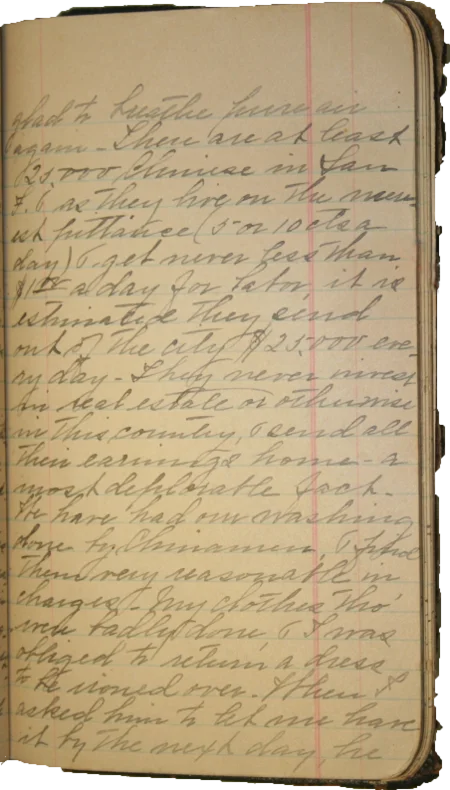 glad to breathe pure air
again - There are at least
25,000 Chinese in San
F. & as they live on the mere-
est pittance (5 or 10 cts a
day) & get never less than
$1.00 a day for labor it is
estimated they send
out of the city $25,000 eve-
ry day - They never invest
in real estate or otherwise
in this country, & send all
their earnings home - a
most deplorable fact -
We have had our washing
done by Chinamen, & find
them very reasonable in
charges - My clothes tho'
were badly done & I was
obliged to return a dress
to be ironed over. When I
asked him to let me have
it by the next day, he